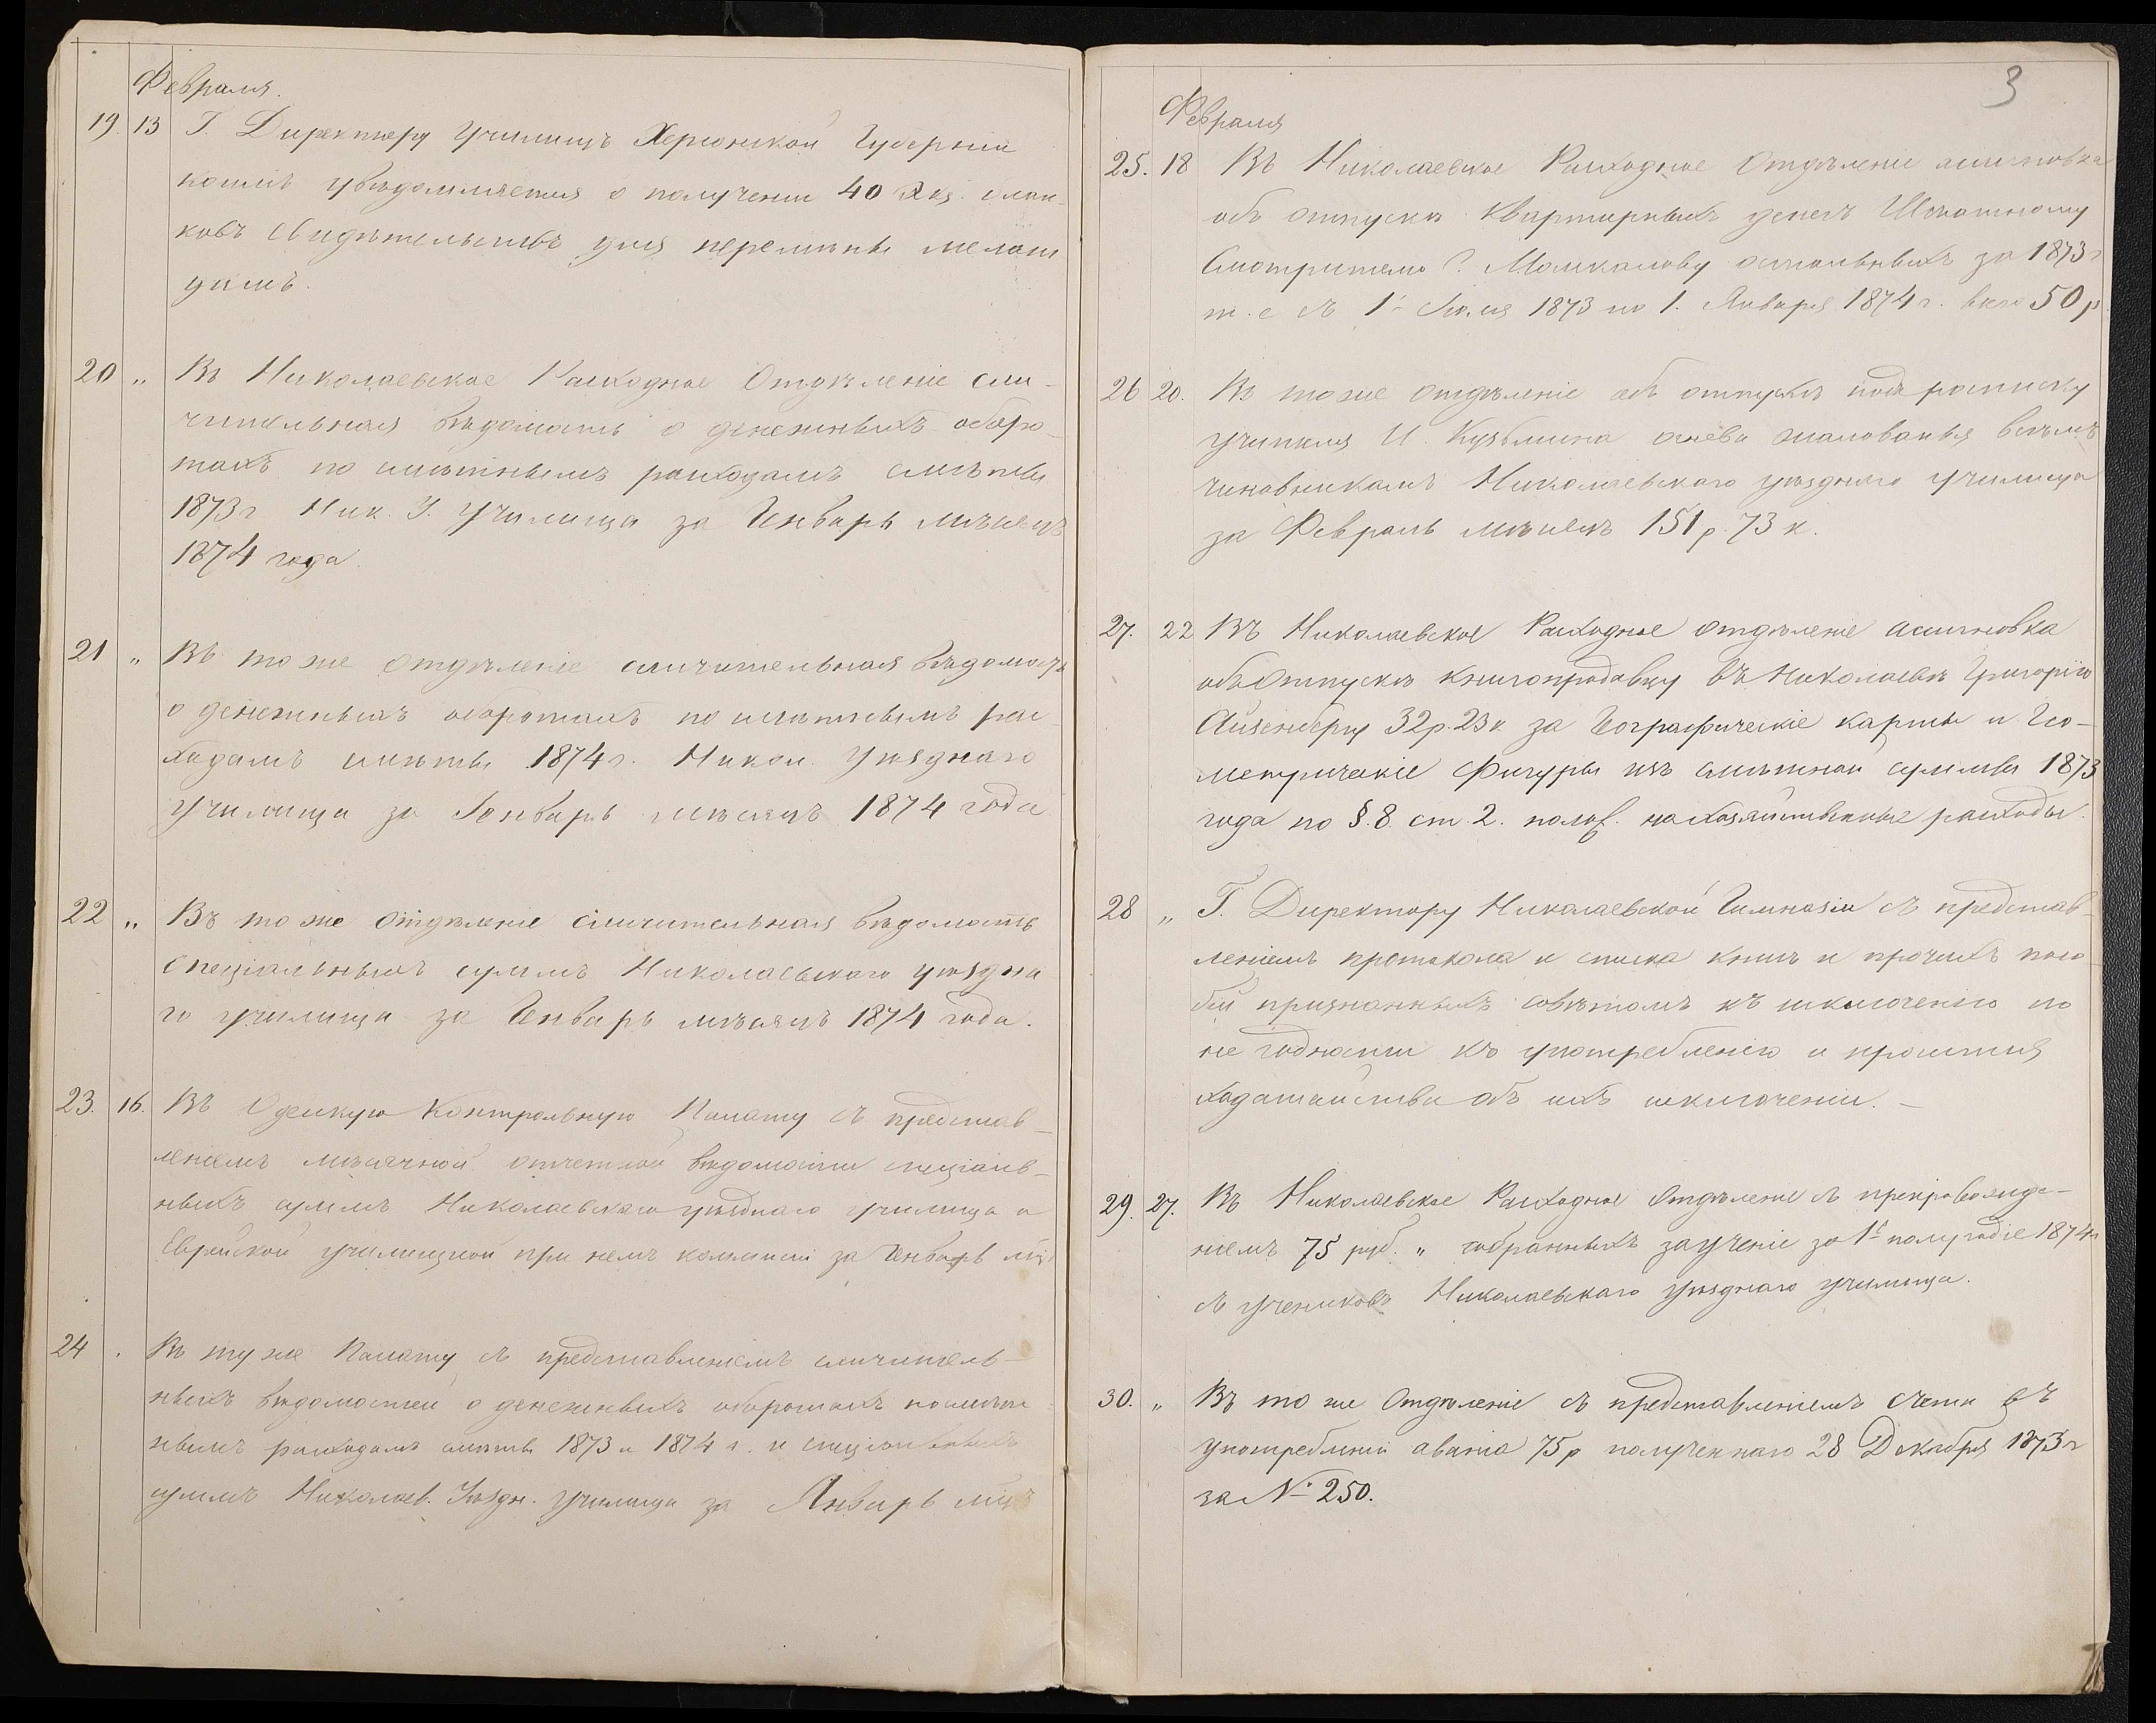 Февраля.
19. 13 Г. Директору Училищъ Херсонской Губерніи
коимъ увѣдомляется о полученіи 40 экз. блан-
ковъ свидѣтельствъ для перемѣны
20 „ Въ Николаевское Расходное Отдѣленіе сли-
чительная вѣдомость о денежныхъ оборо-
тахъ по смѣтнымъ расходамъ смѣты
1873 г Ник. У. Училища за Генварь мѣсяцъ
1874 года.
21 „ Въ тоже Отдѣленіе сличительная вѣдомость
о денежныхъ оборотахъ по смѣтнымъ рас-
ходамъ смѣты 1874 г. Никол. Уѣзднаго
училища за Генварь мѣсяцъ 1874 года
22 „ Въ тоже Отдѣленіе сличительная вѣдомость
спеціальныхъ суммъ Николаевскаго уѣздна
го училища за Генварь мѣсяцъ 1874 года.
23. 16. Въ Одескую Контрольную Палату съ представ-
леніемъ мѣсячной отчетной вѣдомости спеціаль-
ныхъ суммъ Николаевскаго уѣзднаго училища и
Еврейской училищной при немъ комисіи за Генварь мцъ
24 . Въ туже Палату съ представленіемъ сличитель-
ныхъ вѣдомостей о денежныхъ оборотахъ по смѣт
нымъ расходамъ смѣтъ 1873 и 1874 г. и спеціальныхъ
суммъ Николаев. Уѣздн. училища за Январь мцъ
3
Февраля
25. 18 Въ Николаевское Расходное Отдѣленіе асигновка
объ отпускѣ квартирныхъ денегъ Штатному
Смотрителю Г. остальныхъ за 1873 г
т. е съ 1го Іюля 1873 по 1. Января 1874 г. всего 50 р
26 20. Въ тоже Отдѣленіе объ отпускѣ подъ росписку
учителя И. Кузьмина онаго жалованья всѣмъ
чиновникамъ Николаевскаго уѣзднаго училища
за Февраль мѣсяцъ 151 р. 73 к.
27. 22 Въ Николаевское Расходное отдѣленіе асигновка
объ отпускѣ книгопродавцу въ Николаевѣ Григорію
Айзенбергу 32 р. 23 к за Географическіе карты и Гео-
метрическіе фигуры изъ смѣтной суммы 1873
года по §. 8. ст. 2. на хозяйственные расходы.
28 „ Г. Директору Николаевской Гимназіи съ представ-
леніемъ протокола и списка книгъ и прочихъ посо-
бій признанныхъ совѣтомъ къ исключенію по
не годности къ употребленію и просится
ходатайства объ ихъ исключеніи. —
29. 27. Въ Николаевское Расходное Отдѣленіе съ препровожде-
ніемъ 75 руб. „ собранныхъ за ученіе за 1е полугодіе 1874 г
съ учениковъ Николаевскаго уѣзднаго училища.
30. „ Въ тоже Отдѣленіе съ представленіемъ счета въ
употребленіи аванса 75 р полученнаго 28 Декабря 1873 г
за № 250.